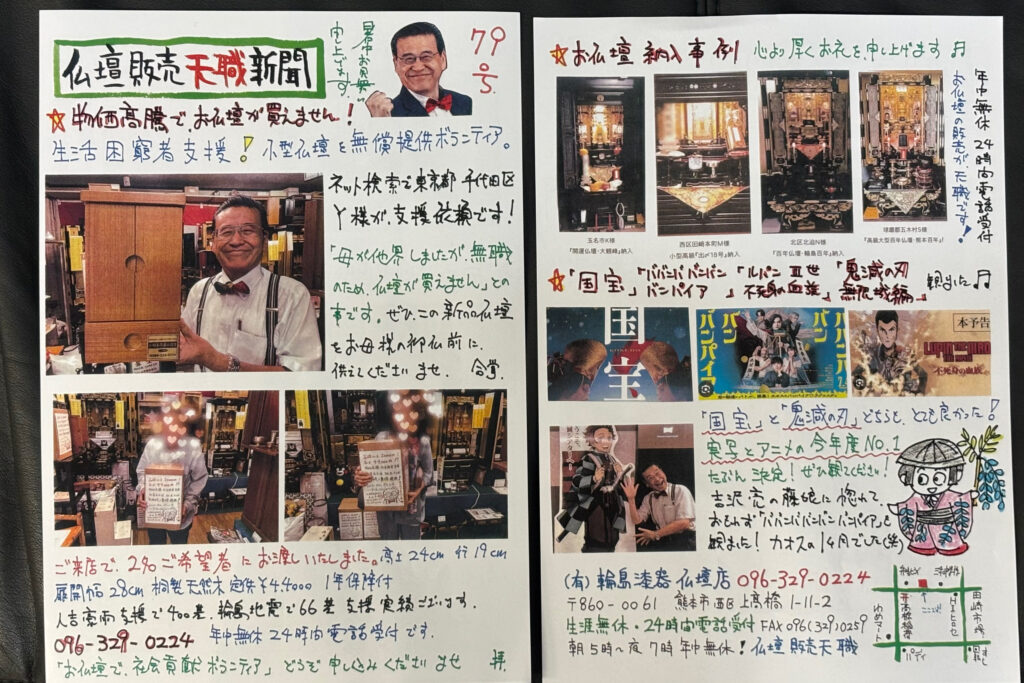 仏壇販売天職新聞
暑中お見舞い
申し上げます。
79号
☆物価高騰で、お仏壇が買えません!
生活困窮者支援!小型仏壇を無償提供ボランティア。
ネット検索で東京都千代田区
Y様が、支援依頼です!
「母が他界しましたが、無職
のため、仏壇が買えません」との
事です。ぜひ、この新品仏壇
をお母様の御仏前に、
供えてくださいませ。合掌
ご来店で、2名ご希望者にお渡しいたしました。高さ24cm 行19cm
扉開幅28cm 桐製天然木 定価¥44000 1年保障付
人吉豪雨支援で400基、輪島地震で66基支援実績ございます。
096-329-0224 年中無休24時間電話受付です。
「お仏壇で、社会貢献ボランティア」どうぞ申し込みくださいませ 拝.
☆お仏壇納入事例 心より厚くお礼を申し上げます♬
年中無休24時間電話受付
お仏壇の販売が天職です!
玉名市K様
『開運仏壇・大観峰』納入
西区田崎本町M様
小型高級『出〆18号』納入
北区北迫N様
『百年仏壇・輪島百年』納入
球磨郡五木村S様
『高級大型百年仏壇・熊本百年』
☆「国宝」「ババンババンバン
バンパイア」「ルパンⅢ世
不死身の血族」「鬼滅の刃
無限城編」観ました♬
国宝
KOKUHO
ババンババン
バン
バンパイア
本予告
LUPIN THE IIIRD
不死身の血族
「国宝」と「鬼滅の刃」どちらも、とても良かった!
実写とアニメの今年度NO.1
たぶん決定!ぜひ観てください!
吉沢亮の藤娘に惚れて
おもわず「ババンババンバンバンパイア」も
観ました!カオスの1ヶ月でした(笑)
(有)輪島漆器仏壇店 096-329-0224
〒860-0061 熊本市西区上高橋1-11-2
生涯無休・24時間電話受付 FAX 096(329)0259
朝5時~夜7時年中無休!仏壇販売天職
ゆめマート
高橋稲荷
ここです
田崎市場
パディ